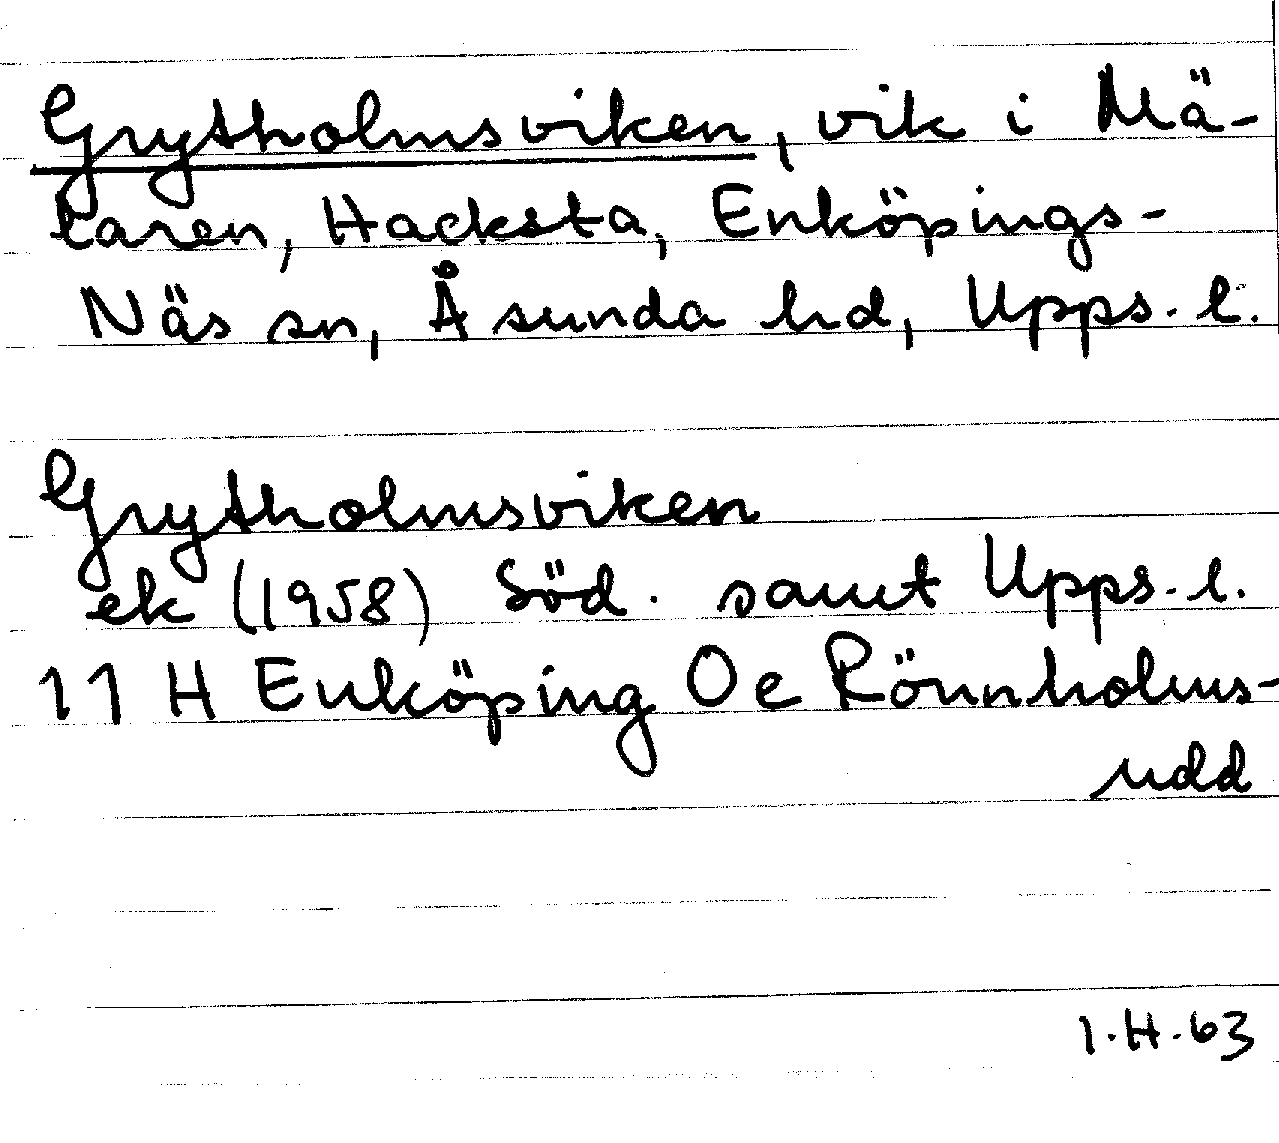 Grytholmsviken, vik i Mä-
laren, Hacksta, Enköpings-
Näs sn, Åsunda hd, Upps. l.
Grytholmsviken
ek (1958) Söd. samt Upps. l.
11 H Enköping Oe Rönnholms-
udd
I.H.63